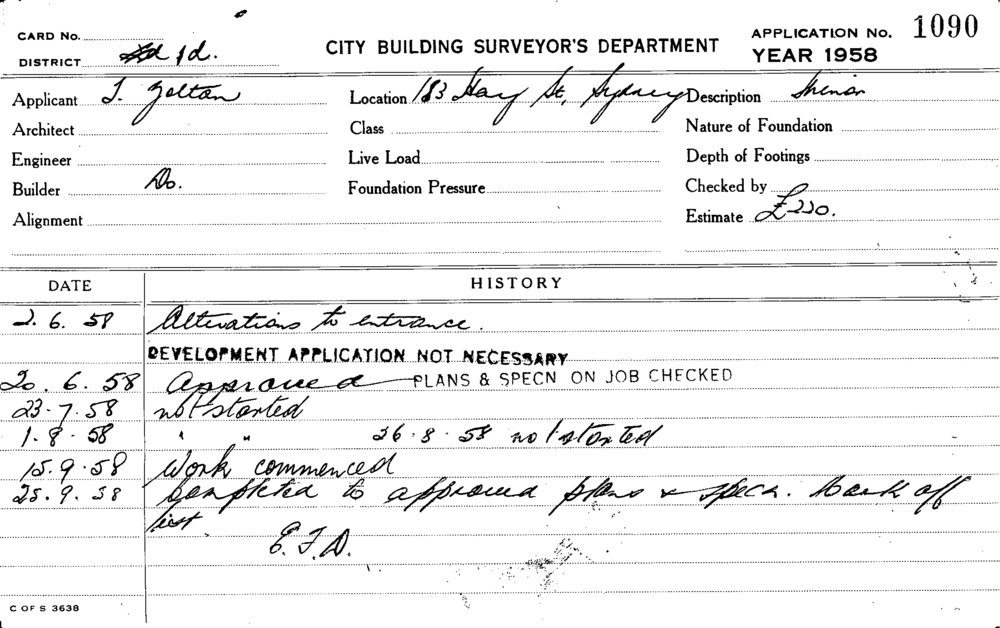 CARD No.
DISTRICT 1d.
CITY BUILDING SURVEYOR'S DEPARTMENT
APPLICATION No. 1090
YEAR 1958
Applicant Zoltan
Location 183 Hay St, Sydney
Description
Architect
Class
Nature of Foundation
Engineer
Live Load
Depth of Footings
Builder Do.
Foundation Pressure
Checked by
Alignment
Estimate £220.
DATE HISTORY
2. 6. 58 Alterations to entrance.
DEVELOPMENT APPLICATION NOT NECESSARY
20. 6. 58 Approved PLANS & SPECN ON JOB CHECKED
23.7.58 not started
1.8.58 " " 26.8.58 not started
15.9.58 Work commenced
25.9.58 Completed to approved plans & specn. Mark off
list
E.F.D.
C OF S 3638